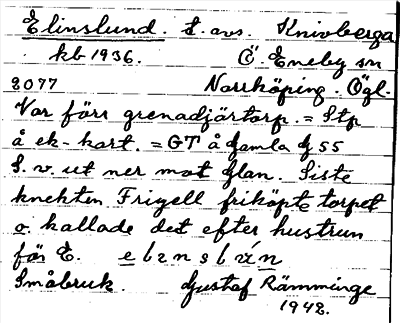 Elinslund. t. avs. Knivberga
kb 1936. Ö. Eneby sn
2077 Norrköping. Ögl.
Var förr grenadjärtorp. = Stp
å ek-kart. = GT å Gamla G 55
S. v. ut ner mot Glan. Siste
knekten Frigell friköpte torpet
o. kallade det efter hustrun
för E.
Småbruk. Gustaf Rämminge
1942.